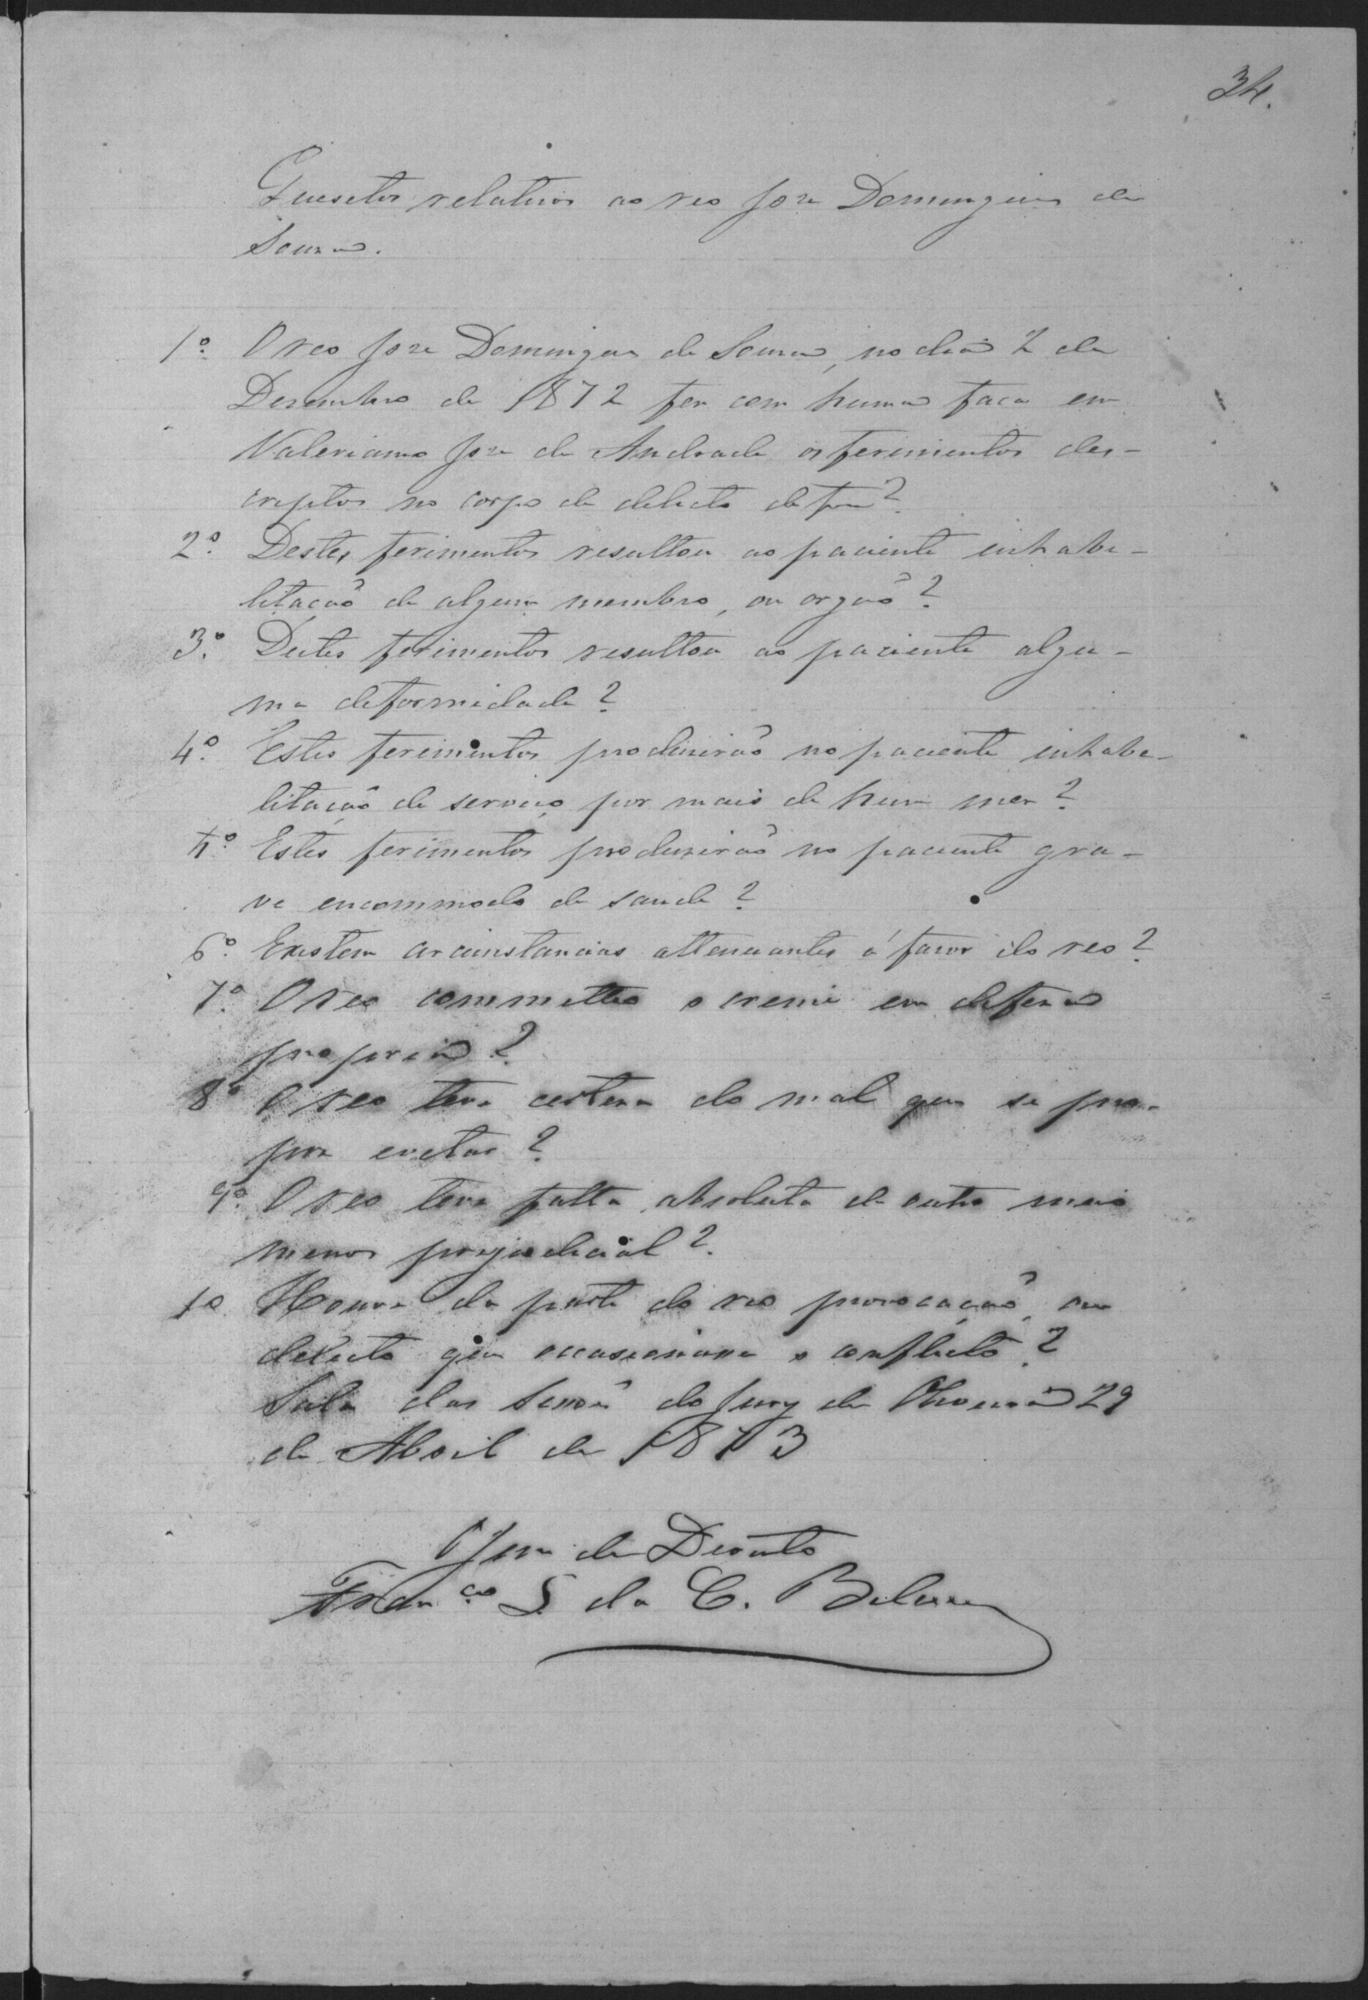 34.
Quesitos relativos ao reo Jose Domingues de
Souza.
1º. O reo Jose Domingues de Souza, no dia 2 de
Desembro de 1872 fez com huma faca em
Valeriano Jose de Andrade os ferimentos des-
criptos no corpo de delicto de f
2º. Destes ferimentos resultou ao paciente enhabe-
litacaõ de algum membro, ou orgaõ?
3º. Destes ferimentos resultou ao paciente algu-
ma deformidade?
4º. Estes ferimentos produziraõ no paciente enhabe-
litaçaõ de serviço por mais de hum mez?
5º. Estes ferimentos produziraõ no paciente gra-
ve encommodo de saude?
6º. Existem circunstancias attenuantes á favor do reo?
7º. O reo commetteo o creme em defeza
propria?
8º O reo teve certeza do mal que se pro-
poz evetar?
9º. O reo teve falta absoluta de outro meio
menos prejudicial?
10 Houve da parte do reo provocaçaõ, ou
delicto que occasionase o conflicto?
Sala das do Jury de 29
de Abril de 1873
O Juiz de Direito
Fran.co S. da C.